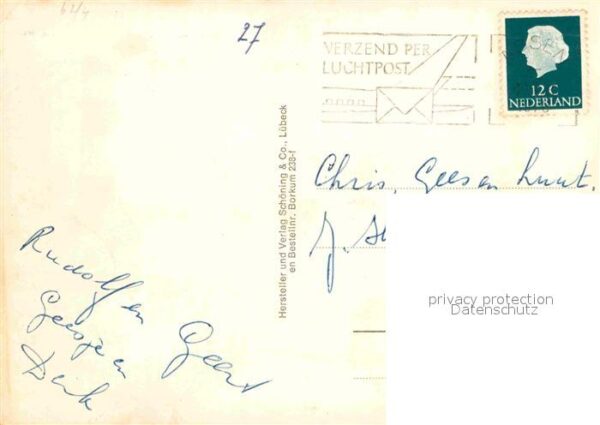 62/4
27
VERZEND PER
LUCHTPOST
12 C
NEDERLAND
Hersteller und Verlag Schöning & Co., Lübeck
en Bestellnr. Borkum 238-f
Chris, Gees en
J.
privacy protection
Datenschutz
Rudolf en Geert
Geesje en
Dirk